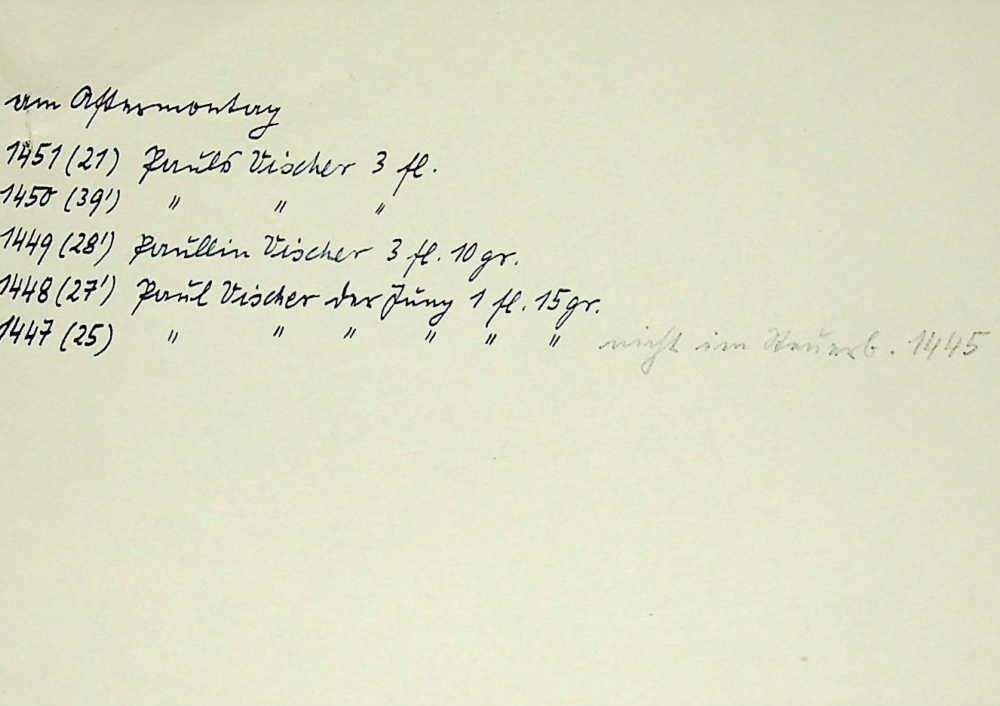 am Aftermontag
1451 (21) Pauls Vischer 3 fl.
1450 (39') " " "
1449 (28') Paullin Vischer 3 fl. 10 gr.
1448 (27') Paul Vischer der Jung 1 fl. 15 gr.
1447 (25) " " " " " " nicht im Steuerb. 1445